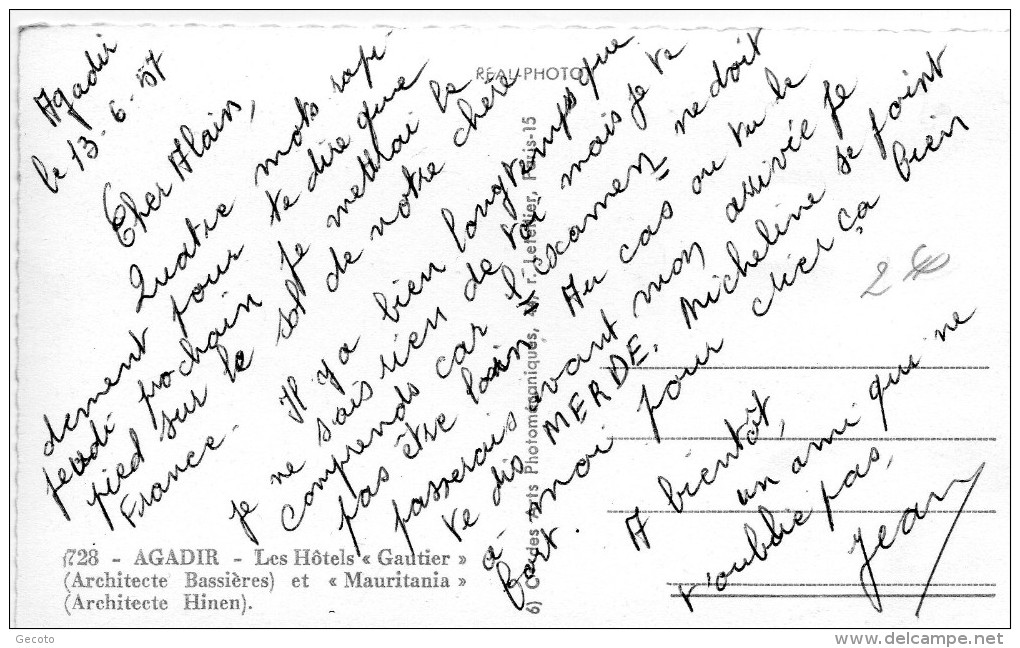 Agadir
le 13-6-57
Cher Alain,
Quatre mots rapi
dement pour te dire que
jeudi prochain je mettrai le
pied sur le sol de notre chère
France.
Il y a bien longtemps que
je ne sais rien de toi mais je te
comprends car l'examen ne doit
pas être loin. Au cas ou tu le
passerais avant mon arrivée je
te dis MERDE. Micheline se joint
a moi pour crier ça bien
fort.
A bientôt,
un ami qui ne
t'oublie pas,
Jean
REAL-PHOTO
des Arts Photomécaniques, r. Letellier, Paris-15
6)
1728 - AGADIR - Les Hôtels « Gautier »
(Architecte Bassières) et « Mauritania »
(Architecte Hinen).
Gecoto
www.delcampe.net